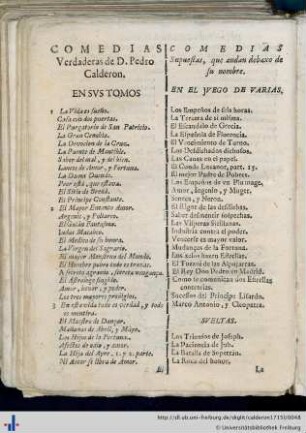 COMEDIAS
Verdaderas de D. Pedro
Calderon,
EN SVS TOMOS
1 La Vida es sueño.
Casa con dos puertas.
El Purgatorio de San Patricio.
La Gran Cenobia.
La Devocion de la Cruz.
La Puente de Mantible.
Saber del mal, y del bien.
Lances de Amor, y Fortuna.
La Dama Duende.
Peor está, que estava.
El Sitio de Bredá.
El Principe Constante.
2 El Mayor Encanto Amor.
Argenis, y Poliarco.
El Galan Fantasma.
Judas Macabeo.
El Medico de su honra.
La Virgen del Sagrario.
El mayor Monstruo del Mundo.
El Hombre pobre todo es trazas.
A secreto agravio, secreta vengança.
El Astrologo fingido.
Amor, honor, y poder.
Los tres mayores prodigios.
3 En esta vida todo es verdad, y todo
es mentira.
El Maestro de Dançar.
Mañanas de Abril, y Mayo.
Los Hijos de la Fortuna.
Afectos de odio, y amor.
La Hija del Ayre, 1. y 2. parte.
Ni Amor se libra de Amor.
COMEDIAS
Supuestas, que andan debaxo de
su nombre.
EN EL JVEGO DE VARIAS,
Los Empeños de seis horas.
La Tercera de si misma.
El Escandalo de Grecia.
La Española de Florencia.
El Vencimiento de Turno.
Los Desdichados dichosos.
Las Canas en el papel.
El Conde Lucanor, part.
El mejor Padre de Pobres.
Los Empeños de
Amor, Ingenio, y Muger.
Zentes, y Moros.
El Rigor de las desdichas.
Saber desmentir sospechas.
Las Visperas Sicilianas.
Industria contra el poder.
Vencerse es mayor valor.
Mudanças de la Fortuna.
El Tuzani de las Alpujarras.
El Rey Don Pedro en Madrid.
Como se comunican dos Estrellas
contrarias.
Sucessos del Principe Lisardo.
Marco Antonio, y Cleopatra.
SVELTAS.
Los Triunfos de Joseph.
La Paciencia de Job.
La Batalla de Sopetran.
La Roca del honor.
La
http://dl.ub.uni-freiburg.de/diglit/calderon1715/0048
© Universitätsbibliothek Freiburg